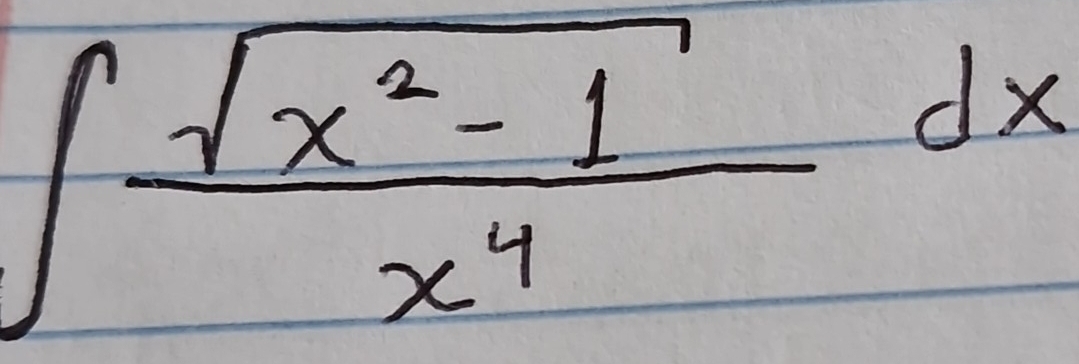 ∫ √(x² - 1) / x⁴ dx